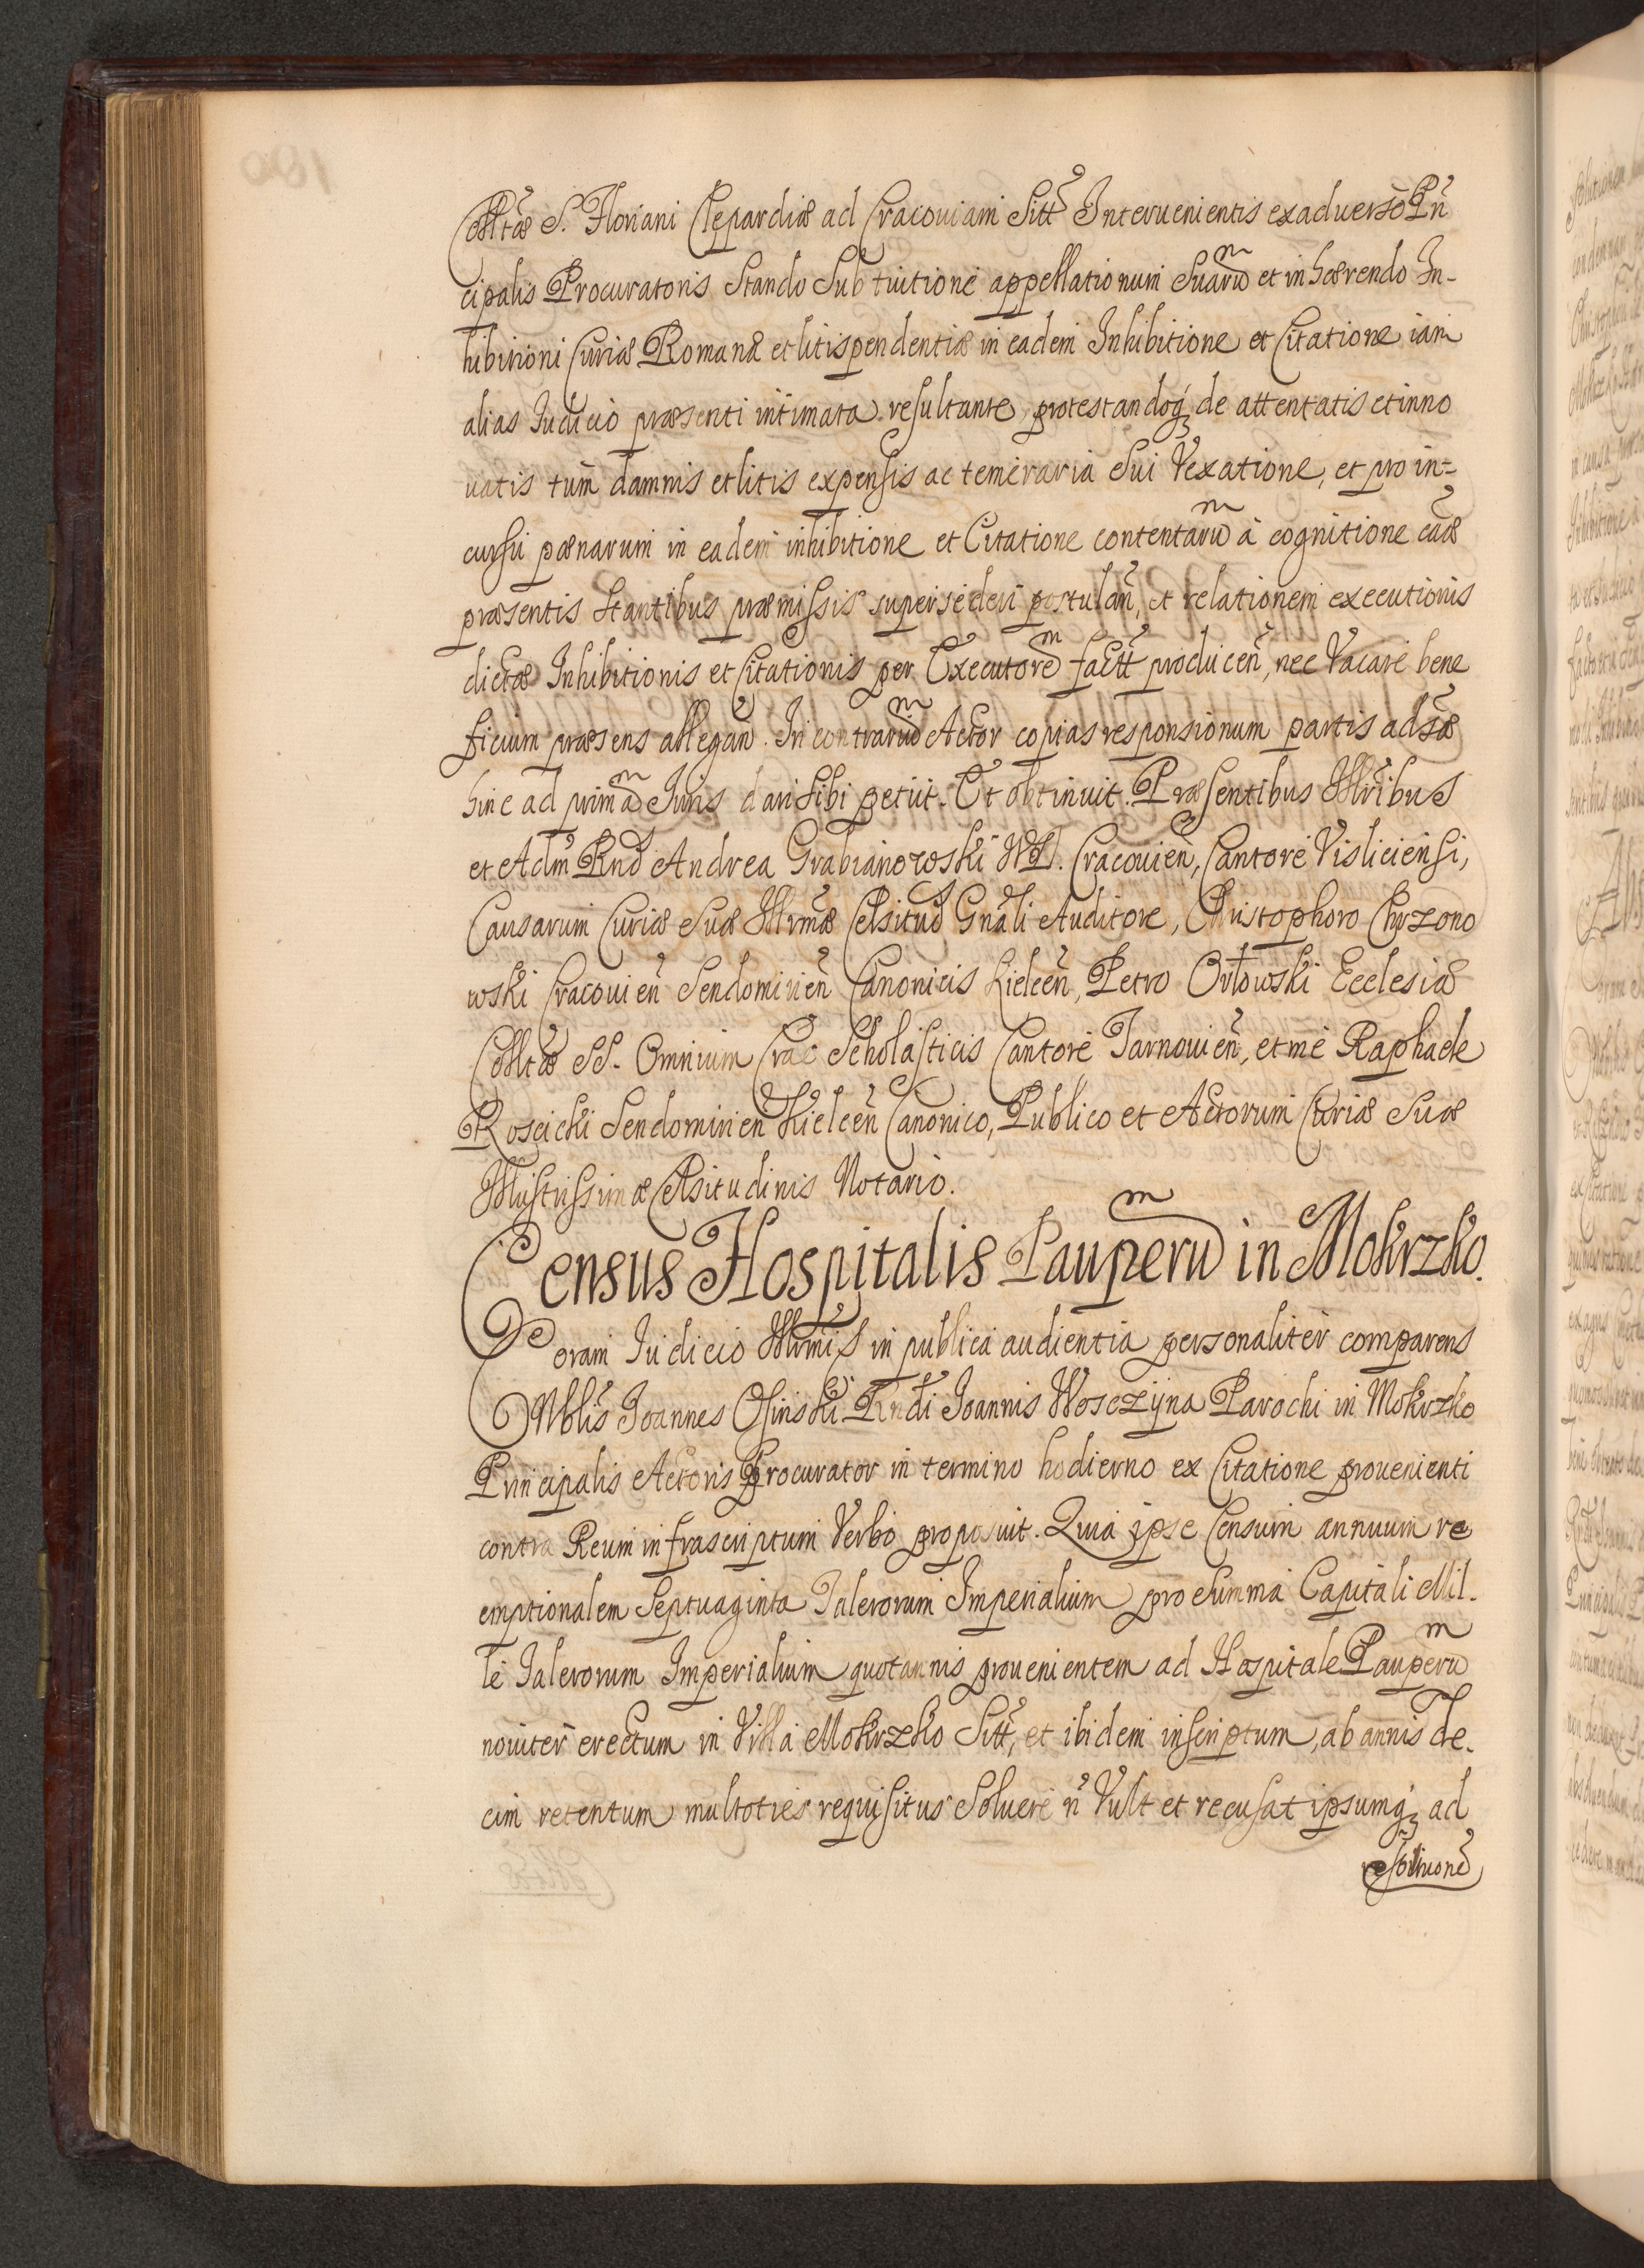 Colltæ S. Floriani Clepardiæ ad Cracouiam Sitt Interuenientis exaduerso Prin
cipalis Procuratoris Stando Sub tuitione appellationum Suarum et inhærendo In-
hibitioni Curiæ Romanæ et litispendentiæ in eadem Inhibitione et Citatione iam
alias Iudicio præsenti intimata resultante, protestandoq; de attentatis et inno
uatis tum damnis et litis expensis ac temeraria Sui Vexatione, et pro in-
cursu pœnarum in eadem inhibitione et Citatione contentarum à cognitione caæ
præsentis Stantibus præmissis supersederi postulañ, et relationem executionis
dictæ Inhibitionis et Citationis per Executorem factt producen̄, nec Vacare bene
ficium præsens allegañ. In contrarium Actor copias responsionum partis adsæ
hinc ad primam Iuris dari Sibi petiit. Et obtinuit. Præsentibus Illribus
et Adm Rnd Andrea Grabianowski VD. Cracouien̄, Cantore Visliciensi,
Causarum Curiæ Suæ Illrmæ Celsitud Gnali Auditore, Christophoro Chrzono
wski Cracouien̄ Sendomirien̄ Canonicis Kielcen̄, Petro Orłowski Ecclesiæ
Colltæ SS. Omnium Crac Scholasticis Cantore Tarnouien̄, et me Raphaele
Roscicki Sendomirien̄ Kielcen̄ Canonico, Publico et Actorum Curiæ Suæ
Illustrissimæ Celsitudinis Notario.
Census Hospitalis Pauperum in Mokrzko.
Coram Iudicio Illrmi S in publica audientia personaliter comparens
Nblis Ioannes Osinski Rndi Ioannis Wosczyna Parochi in Mokrzko
Principalis Actoris Procurator in termino hodierno ex Citatione prouenienti
contra Reum infrascriptum Verbo proposuit. Quia ipse Censum annuum re
emptionalem Septuaginta Talerorum Imperialium pro Summa Capitali Mil-
le Talerorum Imperialium quotannis prouenientem ad Hospitale Pauperum
nouiter erectum in Villa Mokrzko Sitt, et ibidem inscriptum, ab annis De-
cim retentum multoties requisitus Soluere n̄ Vult et recusat ipsumq; ad